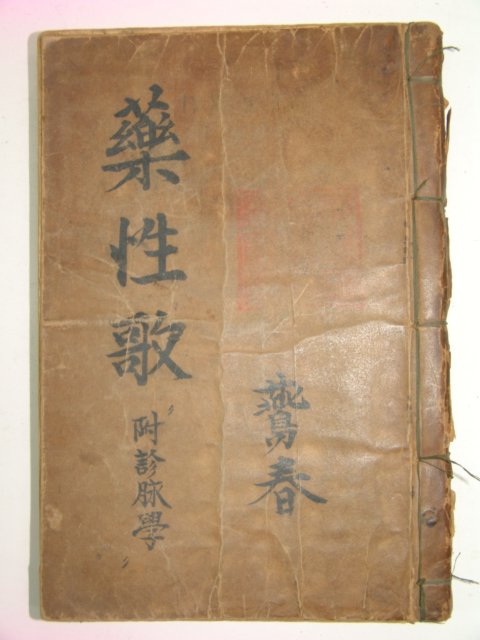 藥性歌
附診脉學
春